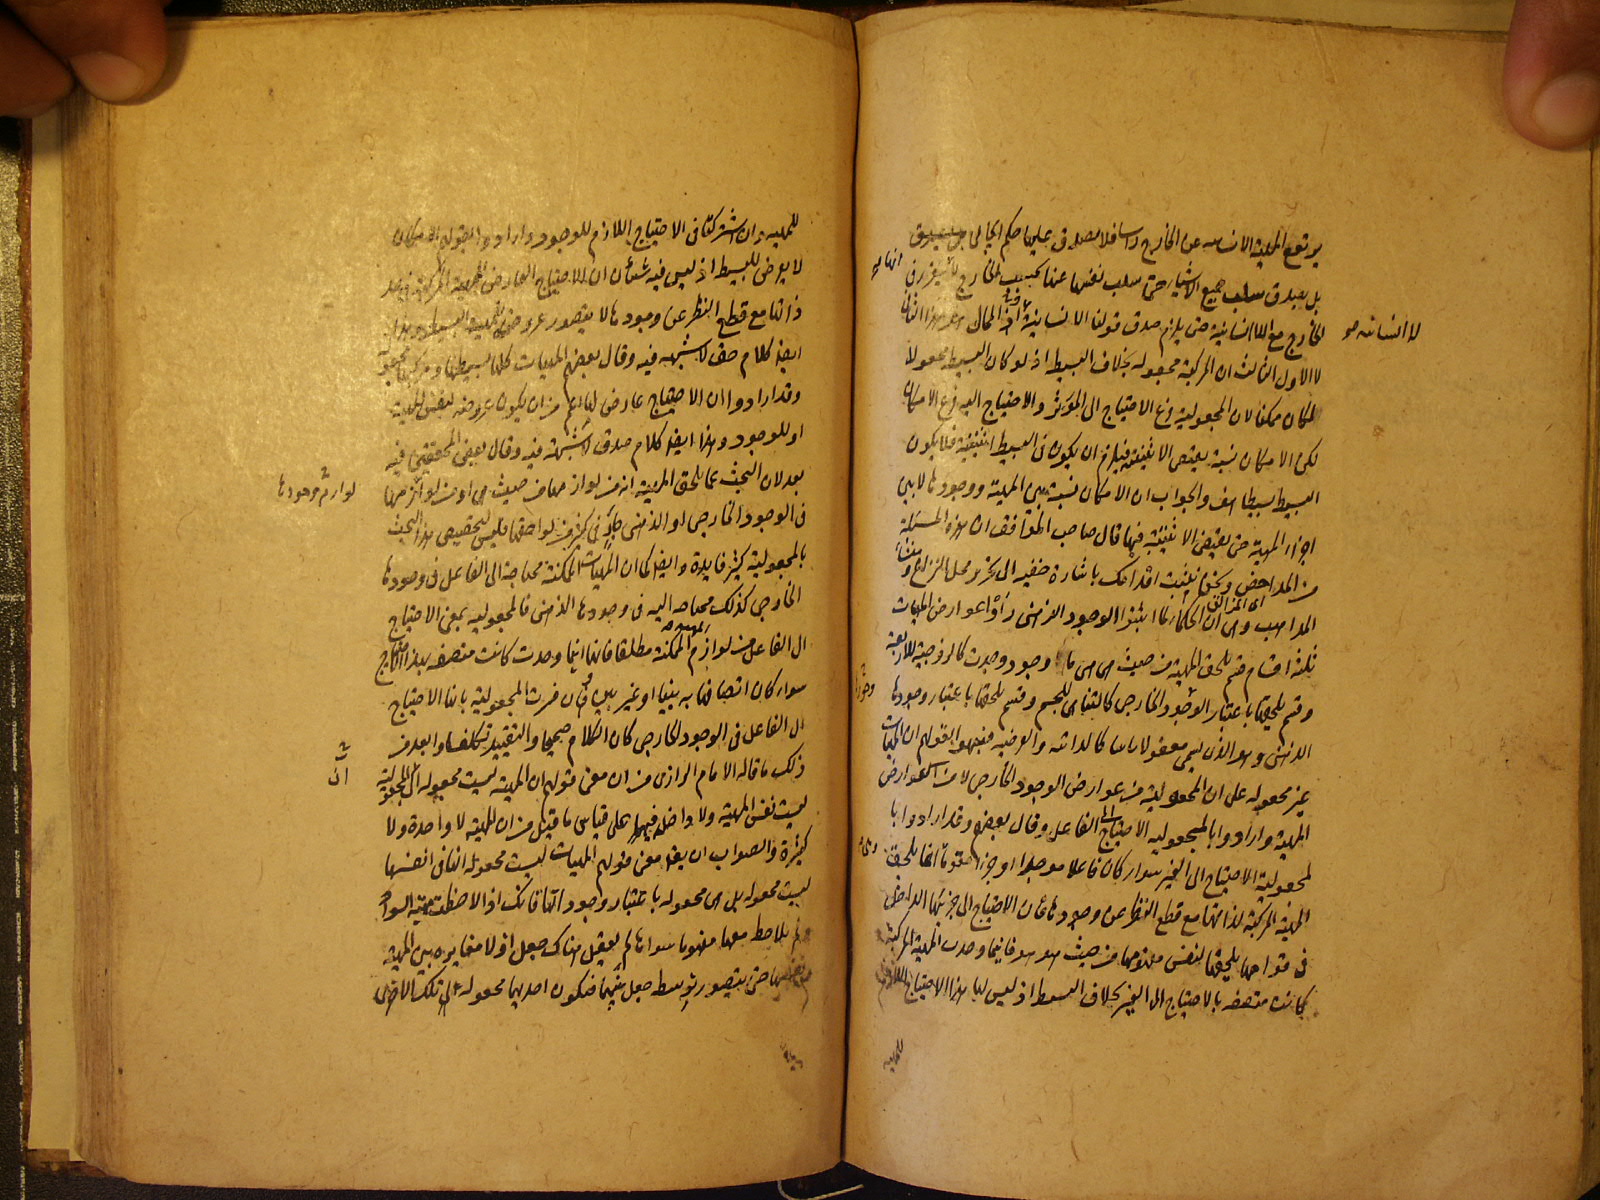 يرتفع المهية الانسانية عن الخارج راسا فلا يصدق عليها حكم ايجابي
بل يصدق سلب جميع الاشياء حتى سلب نفسها عنها بحسب الخارج لا يتقرر في
الخارج مع اللاانسانية حتى يلزم صدق قولنا الانسانية المحال هو هذا الثاني
لا انسانية هو
لا الاول الثالث ان المركبة مجعولة بخلاف البسيط اذ لو كان البسيط مجعولا
لكان ممكنا لان المجعولية فرع الاحتياج الى المؤثر والاحتياج اليه فرع الامكان
لكن الامكان نسبة يقتضي الاثنينية فيلزم ان يكون في البسيط اثنينية فلا يكون
البسيط بسيطا هف والجواب ان الامكان نسبة بين المهية ووجودها لا بين
اجزاء المهية حتى يقتضي الاثنينية فيها قال صاحب المواقف ان هذه المسئلة
من المداحض ونحن نثبت اقدامك باشارة خفيفة الى تحرير محل النزاع ومنشأ
اى المزالق
المذاهب وهي ان الحكماء لما اثبتوا الوجود الذهني رأوا عوارض المهيات
ثلثة اقسام قسم يلحق المهية من حيث هي هي وجود وجدت كالزوجية للاربعة
وقسم يلحقها باعتبار الوجود الخارجي كالتناهي للجسم وقسم يلحقها باعتبار وجودها
الذهني وهو الذي يسمى معقولا ثانيا كالذاتية والعرضية فنبهوا بقولهم ان المهيات
غير مجعولة على ان المجعولية من عوارض الوجود الخارجي لا من عوارض
المهية وارادوا بالمجعولية الاحتياج الى الفاعل وقال بعضهم وقد ارادوا با
لمجعولية الاحتياج الى الغير سواء كان فاعلا موجدا او جزءا مقوما انها يلحق
المهية المركبة لذاتها مع قطع النظر عن وجودها فان الاحتياج الى جزئها الداخل
في قوامها يلحقها لنفس مفهومها من حيث هو هو فاينما وجدت المهية المركبة
كانت متصفة بالاحتياج الى الغير بخلاف البسيط اذ ليس لها هذا الاحتياج اللازم
للمهية
للمهية وان اشتركتا في الاحتياج اللازم للوجود وارادوا بقولهم الامكان
لا يعرض للبسيط اذ ليس فيه شيئان ان الاحتياج العارض للمهية المركبة في حد
ذاتها مع قطع النظر عن وجودها لا يتصور عروضه للمهية البسيطة وهذا
ايضا كلام حق لا شبهة فيه وقال بعضهم المهيات كلها بسيطها ومركبها مجعولة
وقد ارادوا ان الاحتياج عارض لها اعم من ان يكون عروضه لنفس المهية
او للوجود وهذا ايضا كلام صدق لا شبهة فيه وقال بعض المحققين فيه
بعد لان البحث عما يلحق المهية انه من لوازمها من حيث هي او من لوازمها
لوازم وجودها
في الوجود الخارجي او الذهني جار في كثير من لواحقها فليس لتخصيص هذا البحث
بالمجعولية كثير فايدة وايضا كما ان المهيات الممكنة محتاجة الى الفاعل في وجودها
الخارجي كذلك محتاجة اليه في وجودها الذهني فالمجعولية بمعنى الاحتياج
الى الفاعل من لوازم المهية الممكنة مطلقا فانها اينما وجدت كانت متصفة بهذا الاحتياج
سواء كان اتصافها به بينا او غير بين فان فسرت المجعولية بانها الاحتياج
الى الفاعل في الوجود الخارجي كان الكلام صحيحا والتقييد تكلفا وابعد من
ذلك ما قاله الامام الرازي من ان معنى قولهم ان المهية ليست مجعولة ان المجعولية
ليست نفس المهية ولا داخلة فيها على قياس ما قيل من ان المهية لا واحدة ولا
كثيرة والصواب ان يقال معنى قولهم المهيات ليست مجعولة انها في انفسها
ليست مجعولة بل هي مجعولة باعتبار وجوداتها فانك اذا لاحظت مهية السواد
ولم يلاحظ معها مفهوما سواها لم يعقل هناك جعل اذ لا مغايرة بين المهية
ونفسها حتى يتصور توسط جعل بينهما فيكون احديهما مجعولة الى تلك الاخرى